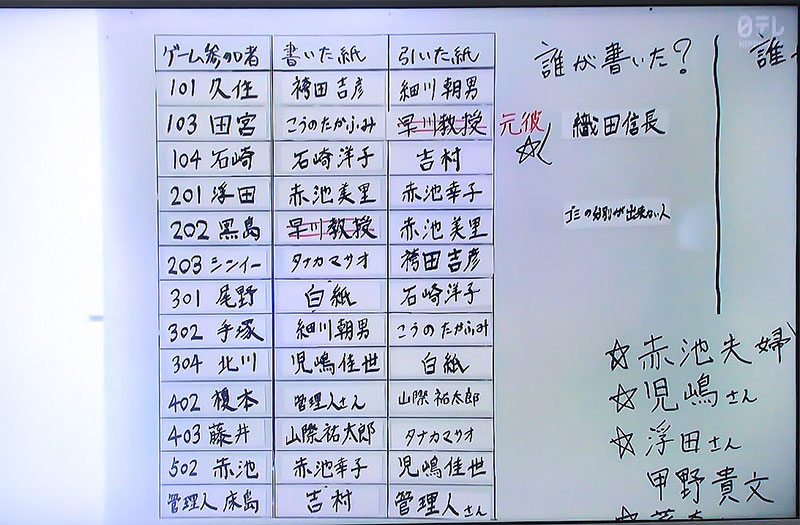 日テレ
ゲーム参加者 書いた紙 引いた紙
101 久住 袴田吉彦 細川朝男
103 田宮 こうのたかふみ 早川教授 元彼
104 石崎 石崎洋子 吉村
201 浮田 赤池美里 赤池幸子
202 黒島 早川教授 赤池美里
203 シンイー タナカマサオ 袴田吉彦
301 尾野 白紙 石崎洋子
302 手塚 細川朝男 こうのたかふみ
304 北川 児嶋佳世 白紙
402 榎本 管理人さん 山際祐太郎
403 藤井 山際祐太郎 タナカマサオ
502 赤池 赤池幸子 児嶋佳世
管理人 床島 吉村 管理人さん
誰が書いた?
織田信長
ゴミの分別が出来ない人
誰
☆赤池夫婦
☆児嶋さん
☆浮田さん
甲野貴文